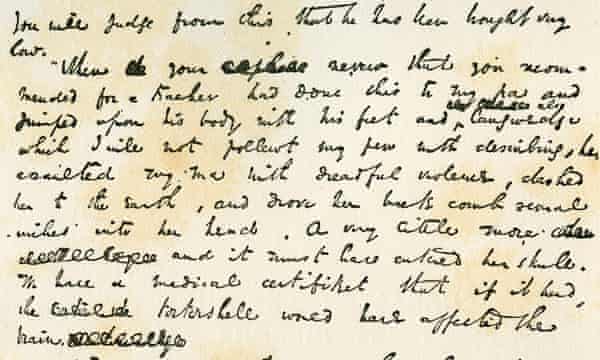 You will judge from this that he has been brought very
low.
"When your nevew that you recom-
mended for a teacher had done this to my pa and
jumped upon his body with his feet and langwedge
which I will not pollewt my pen with describing, he
assaulted my ma with dreadful violence, dashed
her to the earth, and drove her back comb several
inches into her head. A very little more
and it must have entered her skull.
We have a medical certifiket that if it had,
the tortershell would have affected the
brain.